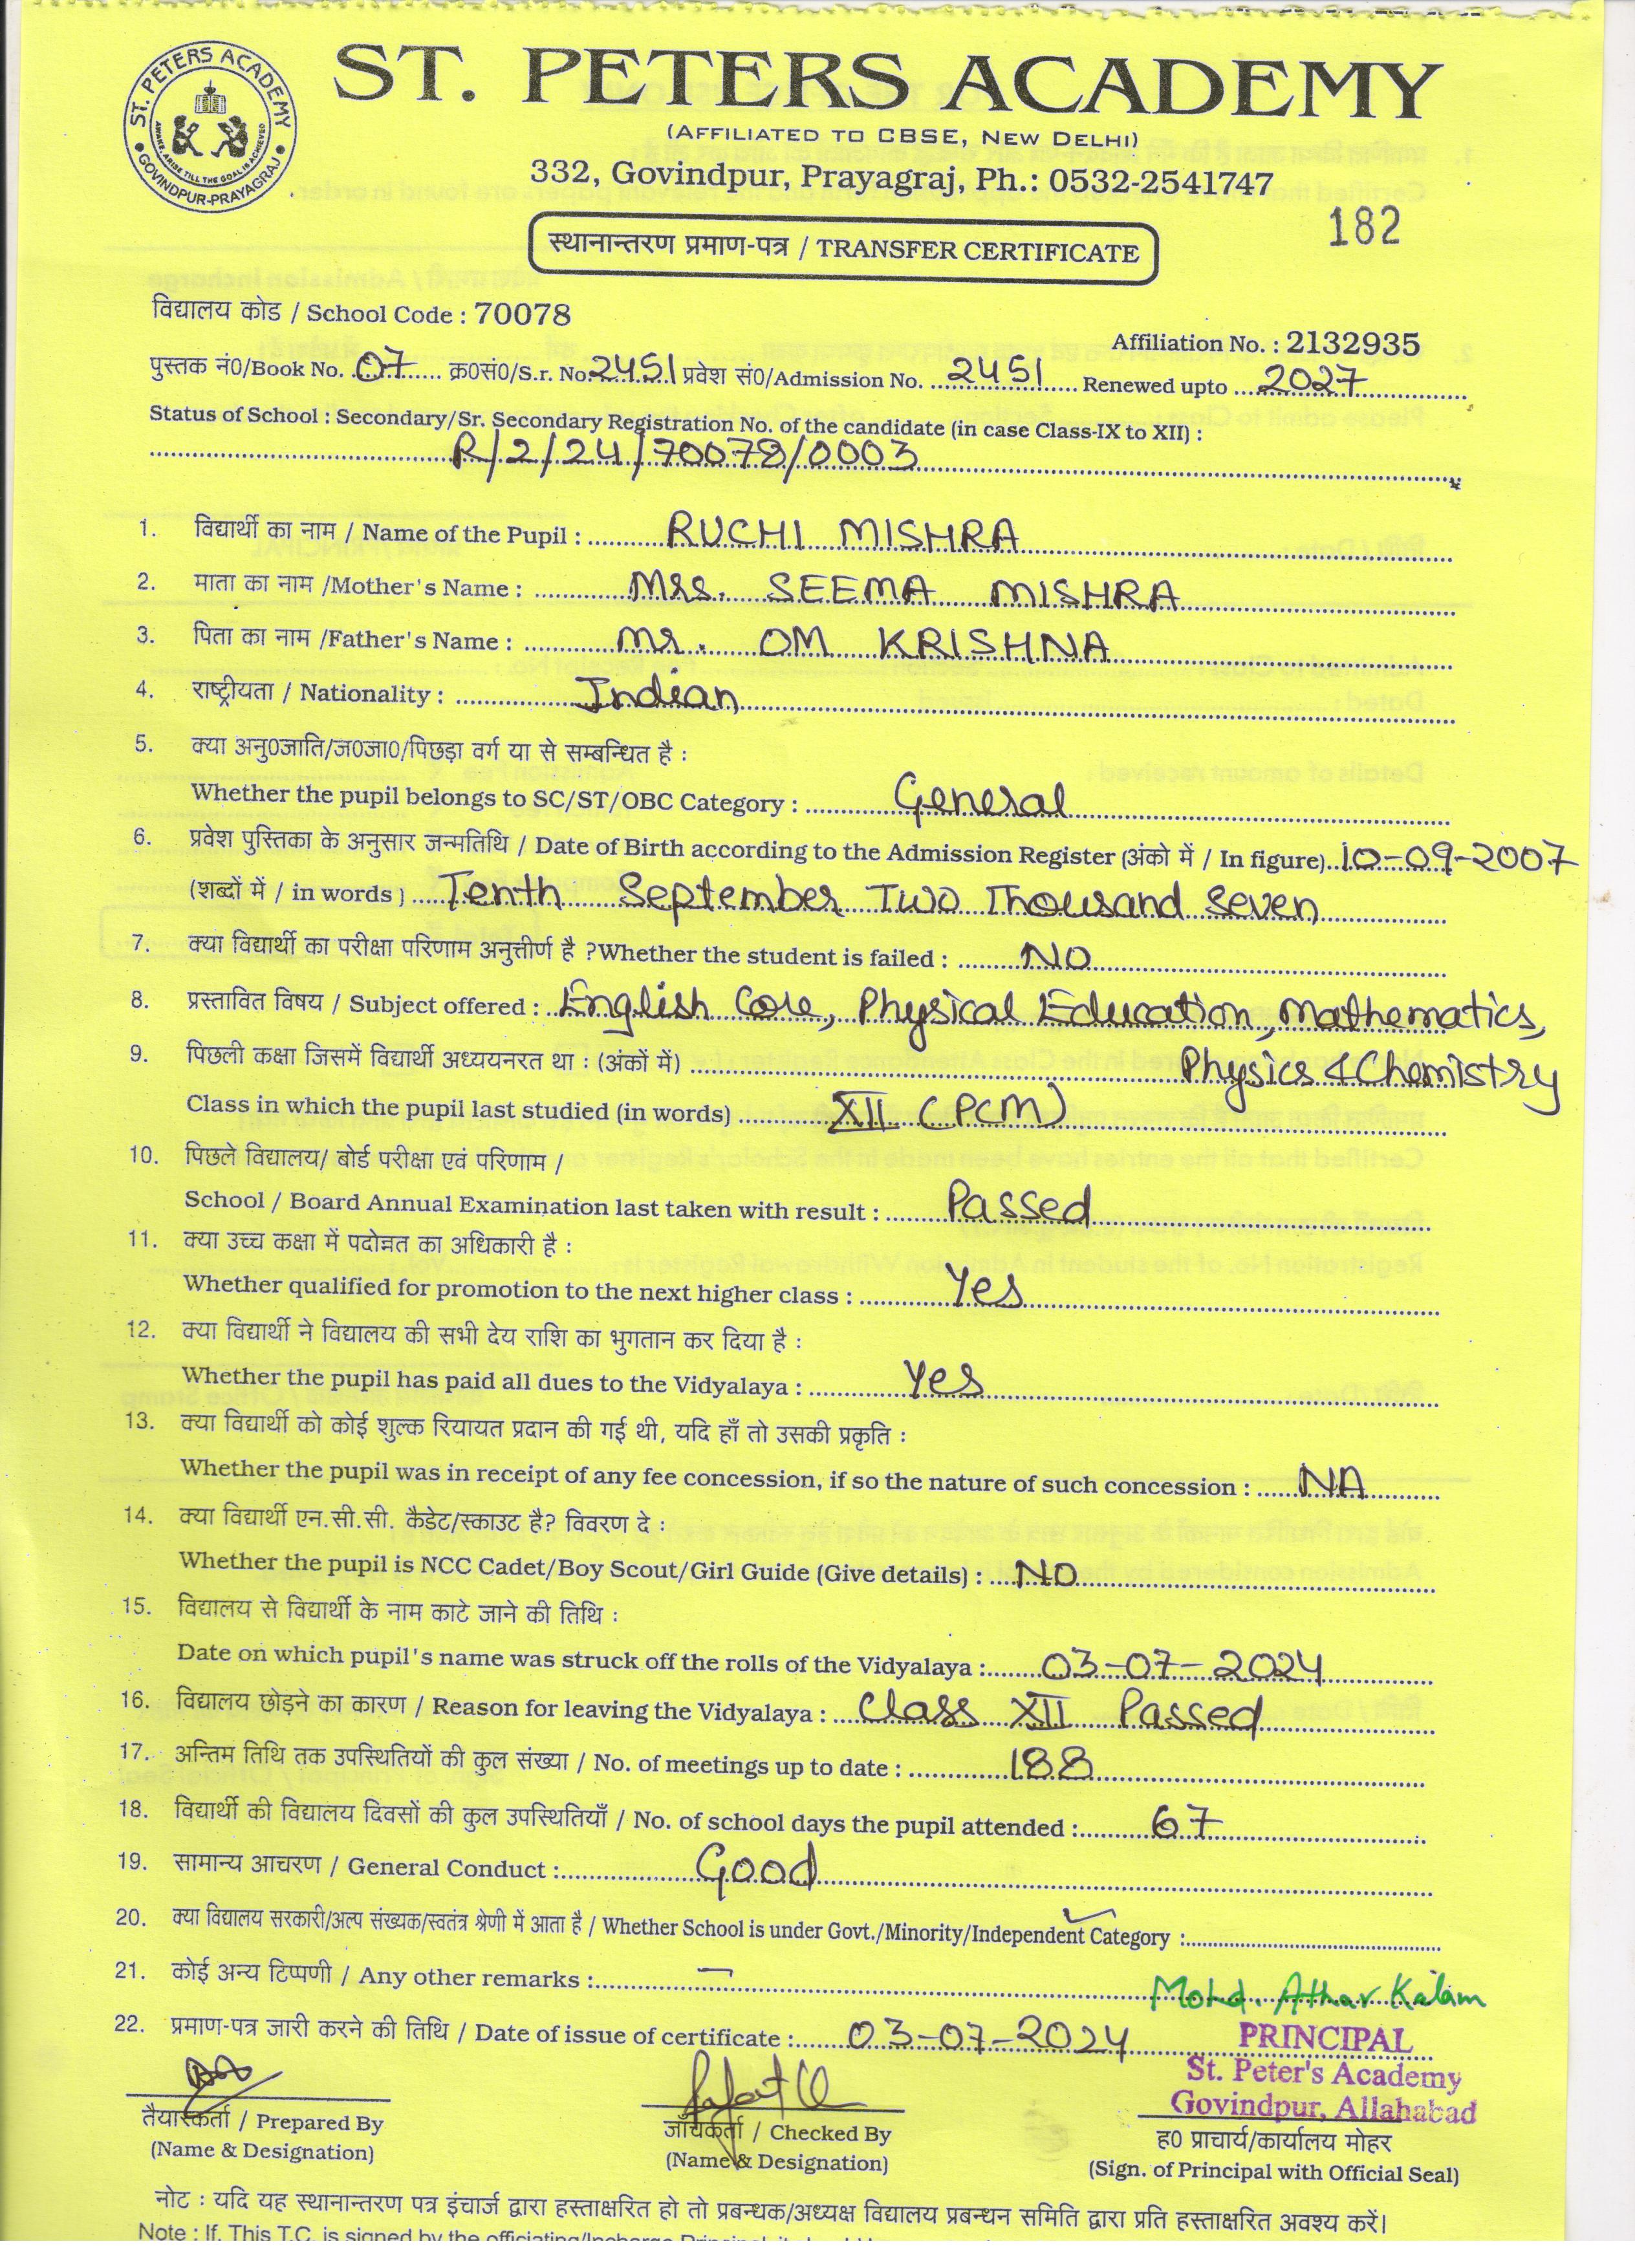 ST. PETERS ACADEMY
ST. PETERS ACADEMY
AWAKE, ARISE TILL THE GOAL IS ACHIEVED
GOVINDPUR-PRAYAGRAJ
(AFFILIATED TO CBSE, NEW DELHI)
332, Govindpur, Prayagraj, Ph.: 0532-2541747
182
स्थानान्तरण प्रमाण-पत्र / TRANSFER CERTIFICATE
विद्यालय कोड / School Code : 70078
Affiliation No. : 2132935
पुस्तक नं0/Book No. 07 क्र0सं0/S.r. No. 2451 प्रवेश सं0/Admission No. 2451 Renewed upto 2027
Status of School : Secondary/Sr. Secondary Registration No. of the candidate (in case Class-IX to XII) :
R/2/24/70078/0003
1. विद्यार्थी का नाम / Name of the Pupil : RUCHI MISHRA
2. माता का नाम /Mother's Name : Mrs. SEEMA MISHRA
3. पिता का नाम /Father's Name : Mr. OM KRISHNA
4. राष्ट्रीयता / Nationality : Indian
5. क्या अनु0जाति/ज0जा0/पिछड़ा वर्ग या से सम्बन्धित है :
Whether the pupil belongs to SC/ST/OBC Category : General
6. प्रवेश पुस्तिका के अनुसार जन्मतिथि / Date of Birth according to the Admission Register (अंको में / In figure) 10-09-2007
(शब्दों में / in words ) Tenth September Two Thousand Seven
7. क्या विद्यार्थी का परीक्षा परिणाम अनुत्तीर्ण है ?Whether the student is failed : NO
8. प्रस्तावित विषय / Subject offered : English Core, Physical Education, Mathematics,
Physics & Chemistry
9. पिछली कक्षा जिसमें विद्यार्थी अध्ययनरत था : (अंकों में)
Class in which the pupil last studied (in words) XII (PCM)
10. पिछले विद्यालय/ बोर्ड परीक्षा एवं परिणाम /
School / Board Annual Examination last taken with result : Passed
11. क्या उच्च कक्षा में पदोन्नत का अधिकारी है :
Whether qualified for promotion to the next higher class : Yes
12. क्या विद्यार्थी ने विद्यालय की सभी देय राशि का भुगतान कर दिया है :
Whether the pupil has paid all dues to the Vidyalaya : Yes
13. क्या विद्यार्थी को कोई शुल्क रियायत प्रदान की गई थी, यदि हाँ तो उसकी प्रकृति :
Whether the pupil was in receipt of any fee concession, if so the nature of such concession : NA
14. क्या विद्यार्थी एन.सी.सी. कैडेट/स्काउट है? विवरण दे :
Whether the pupil is NCC Cadet/Boy Scout/Girl Guide (Give details) : NO
15. विद्यालय से विद्यार्थी के नाम काटे जाने की तिथि :
Date on which pupil's name was struck off the rolls of the Vidyalaya : 03-07-2024
16. विद्यालय छोड़ने का कारण / Reason for leaving the Vidyalaya : Class XII Passed
17. अन्तिम तिथि तक उपस्थितियों की कुल संख्या / No. of meetings up to date : 188
18. विद्यार्थी की विद्यालय दिवसों की कुल उपस्थितियाँ / No. of school days the pupil attended : 67
19. सामान्य आचरण / General Conduct : Good
20. क्या विद्यालय सरकारी/अल्प संख्यक/स्वतंत्र श्रेणी में आता है / Whether School is under Govt./Minority/Independent Category :
21. कोई अन्य टिप्पणी / Any other remarks : —
Mohd. Athar Kalam
22. प्रमाण-पत्र जारी करने की तिथि / Date of issue of certificate : 03-07-2024
PRINCIPAL
St. Peter's Academy
Govindpur, Allahabad
तैयारकर्ता / Prepared By
(Name & Designation)
जाँचकर्ता / Checked By
(Name & Designation)
ह0 प्राचार्य/कार्यालय मोहर
(Sign. of Principal with Official Seal)
नोट : यदि यह स्थानान्तरण पत्र इंचार्ज द्वारा हस्ताक्षरित हो तो प्रबन्धक/अध्यक्ष विद्यालय प्रबन्धन समिति द्वारा प्रति हस्ताक्षरित अवश्य करें।
Note : If. This T.C. is signed by the officiating/Incharge Principal